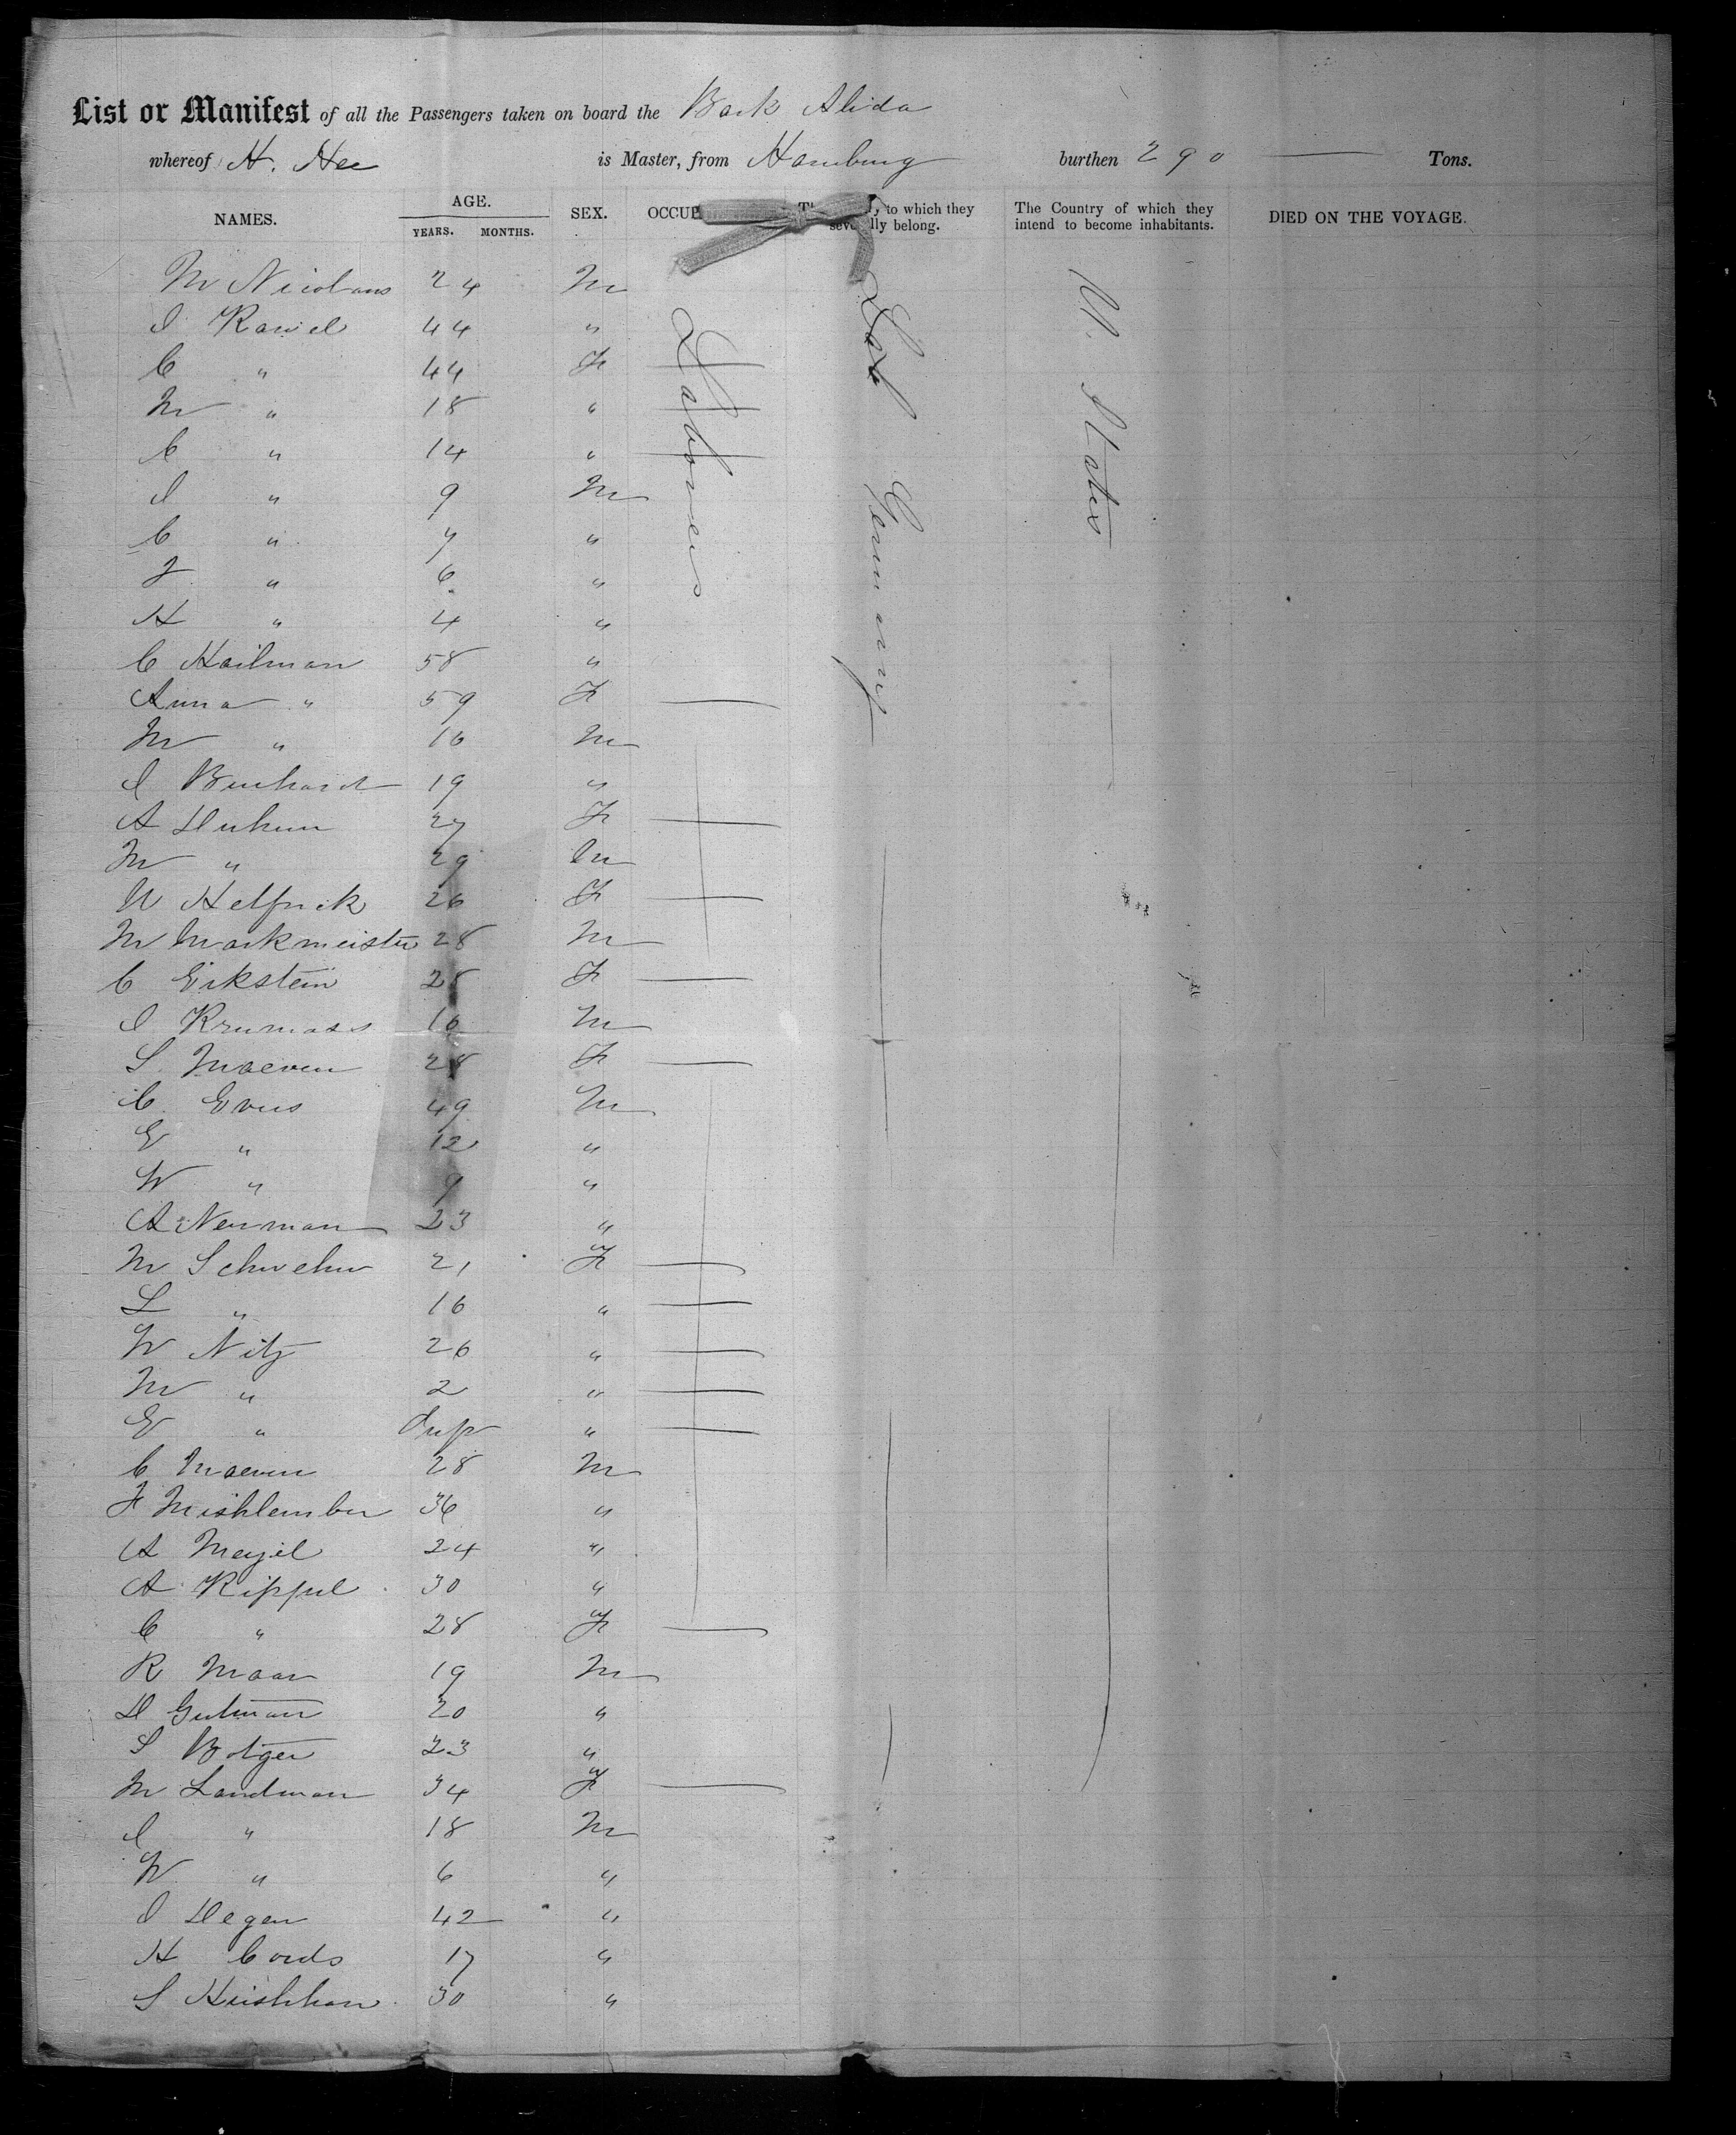 List or Manifest of all the Passengers taken on board the Bark Alida
whereof H. Hee is Master, from Hamburg burthen 290 Tons.
NAMES. AGE. YEARS. MONTHS. SEX. OCCUP to which they severally belong. The Country of which they intend to become inhabitants. DIED ON THE VOYAGE.
Labourers
Germany
U. States
M Nicolaus 24 M
I Raniel 44 "
C " 44 F
M " 18 "
C " 14 "
I " 9 M
C " 7 "
J " 6 "
H " 4 "
C Hailman 58 "
Anna " 59 F
M " 16 M
I Burhardt 19 "
A Duhun 27 F
M " 29 M
W Helfrick 26 F
M Markmeister 28 M
C Eikstein 28 F
I Krumass 16 M
S Maeven 28 F
C Evers 49 M
E " 12 "
W " 9 "
A Neuman 23 "
M Schwehn 21 F
L " 16 "
W Nitz 26 "
M " 2 "
E " Inf "
C Maeven 28 M
F Mishlember 36 "
A Meyel 24 "
A Rippel 30 "
C " 28 F
R Maar 19 M
D Gutman 20 "
S Botger 23 "
M Landman 34 F
I " 18 M
W " 6 "
I Degen 42 "
H Cords 17 "
S Hirshhan 30 "